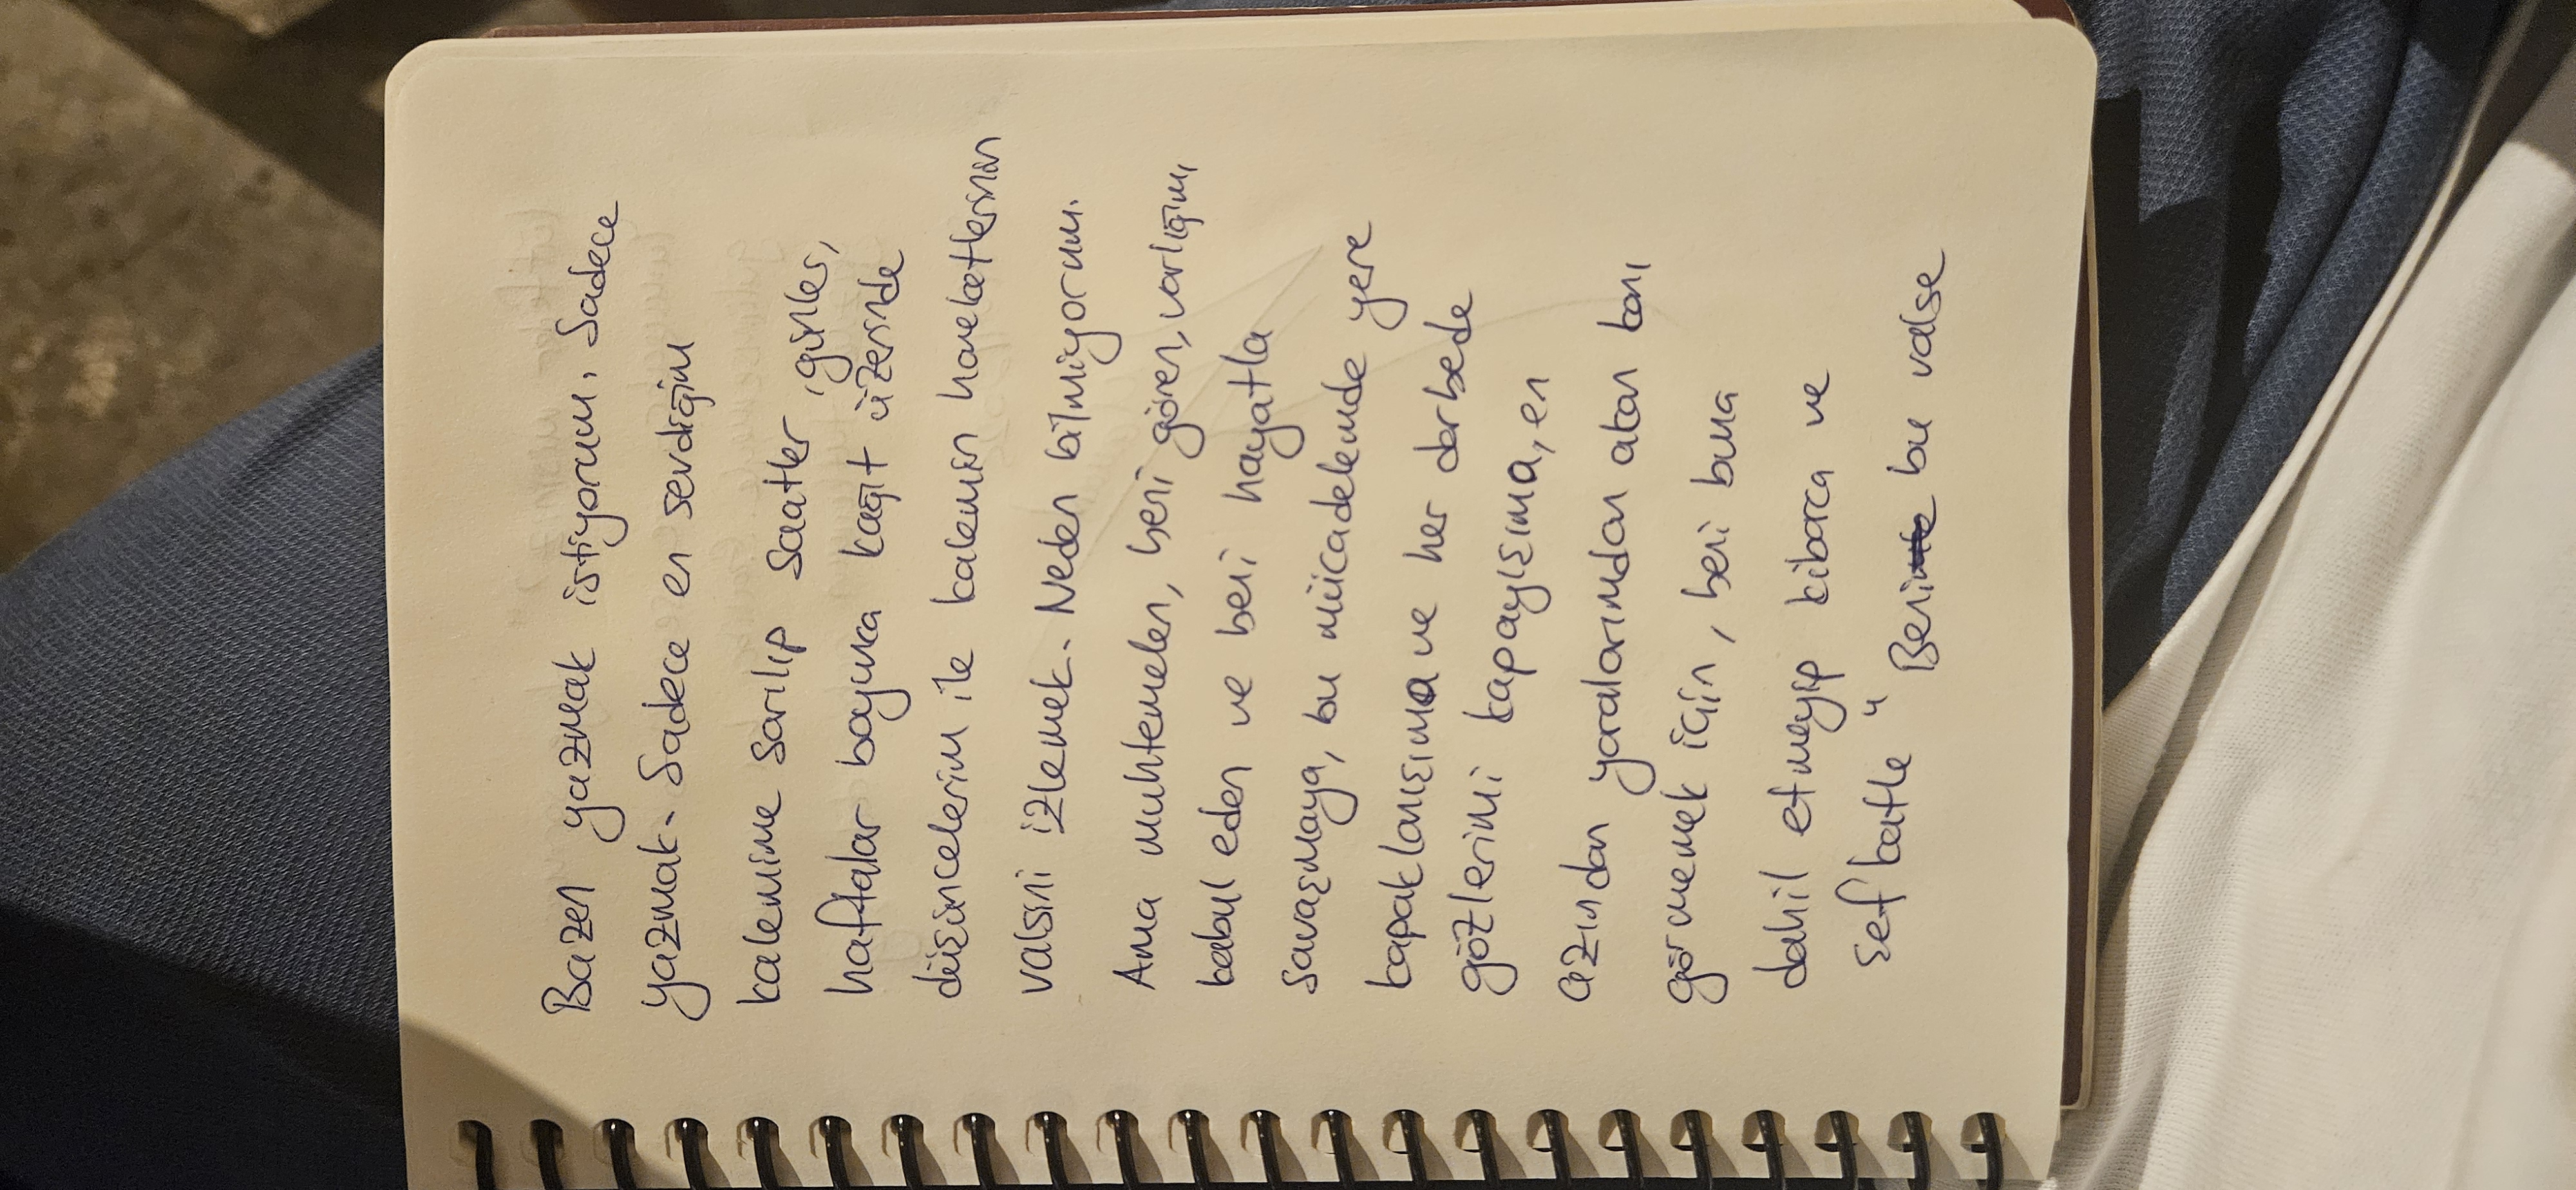 Bazen yazmak istiyorum. Sadece
yazmak. Sadece en sevdiğim
kalemime sarılıp saatler, günler,
haftalar boyunca kağıt üzerinde
düşüncelerim ile kalemin hareketlerinin
valsini izlemek. Neden bilmiyorum.
Ama muhtemelen, beni gören, varlığımı
kabul eden ve beni hayatla
savaşmaya, bu mücadelemde yere
kapaklanışıma ve her darbede
gözlerimi kapayışıma, en
azından yaralarımdan akan kanı
görmemek için, beni buna
dahil etmeyip kibarca ve
şefkatle " Beni bu valse